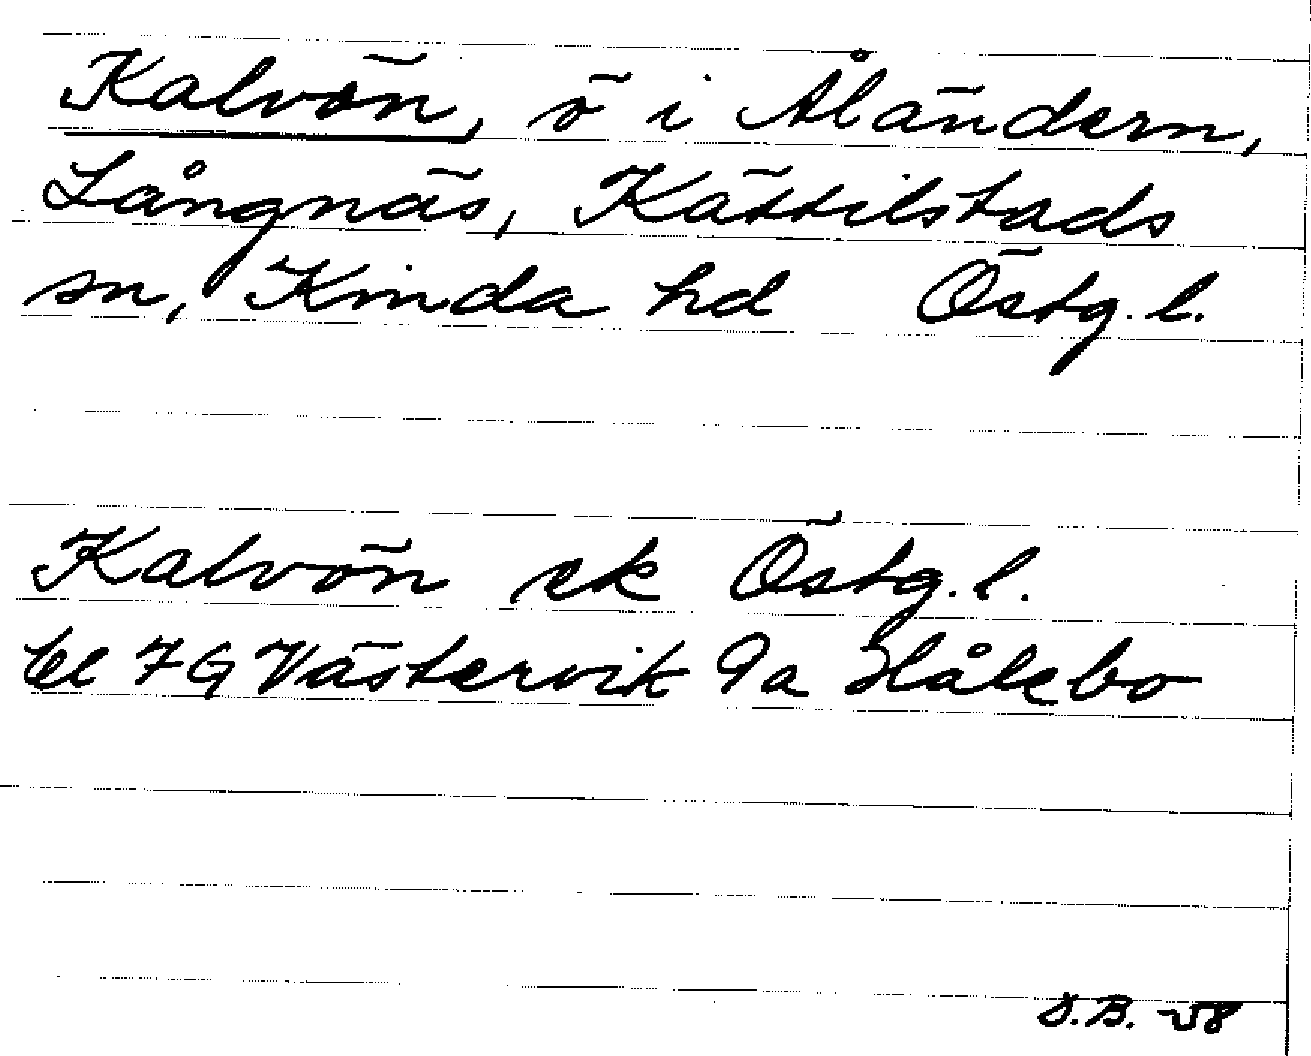 Kalvön, ö i Åländern,
Långnäs, Kättilstads
sn, Kinda hd Östg. l.
Kalvön ek Östg. l.
bl 7G Västervik 9a Hålebo